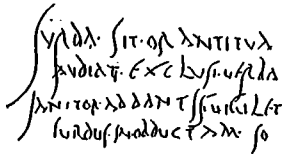 SURDA · SIT · ORANTI TUA
AUDIAT · EXCLUSI · UERBA
IANITOR · AD DANTIS · UIGILET
SURDUS · IN OBDUCTAM · SO